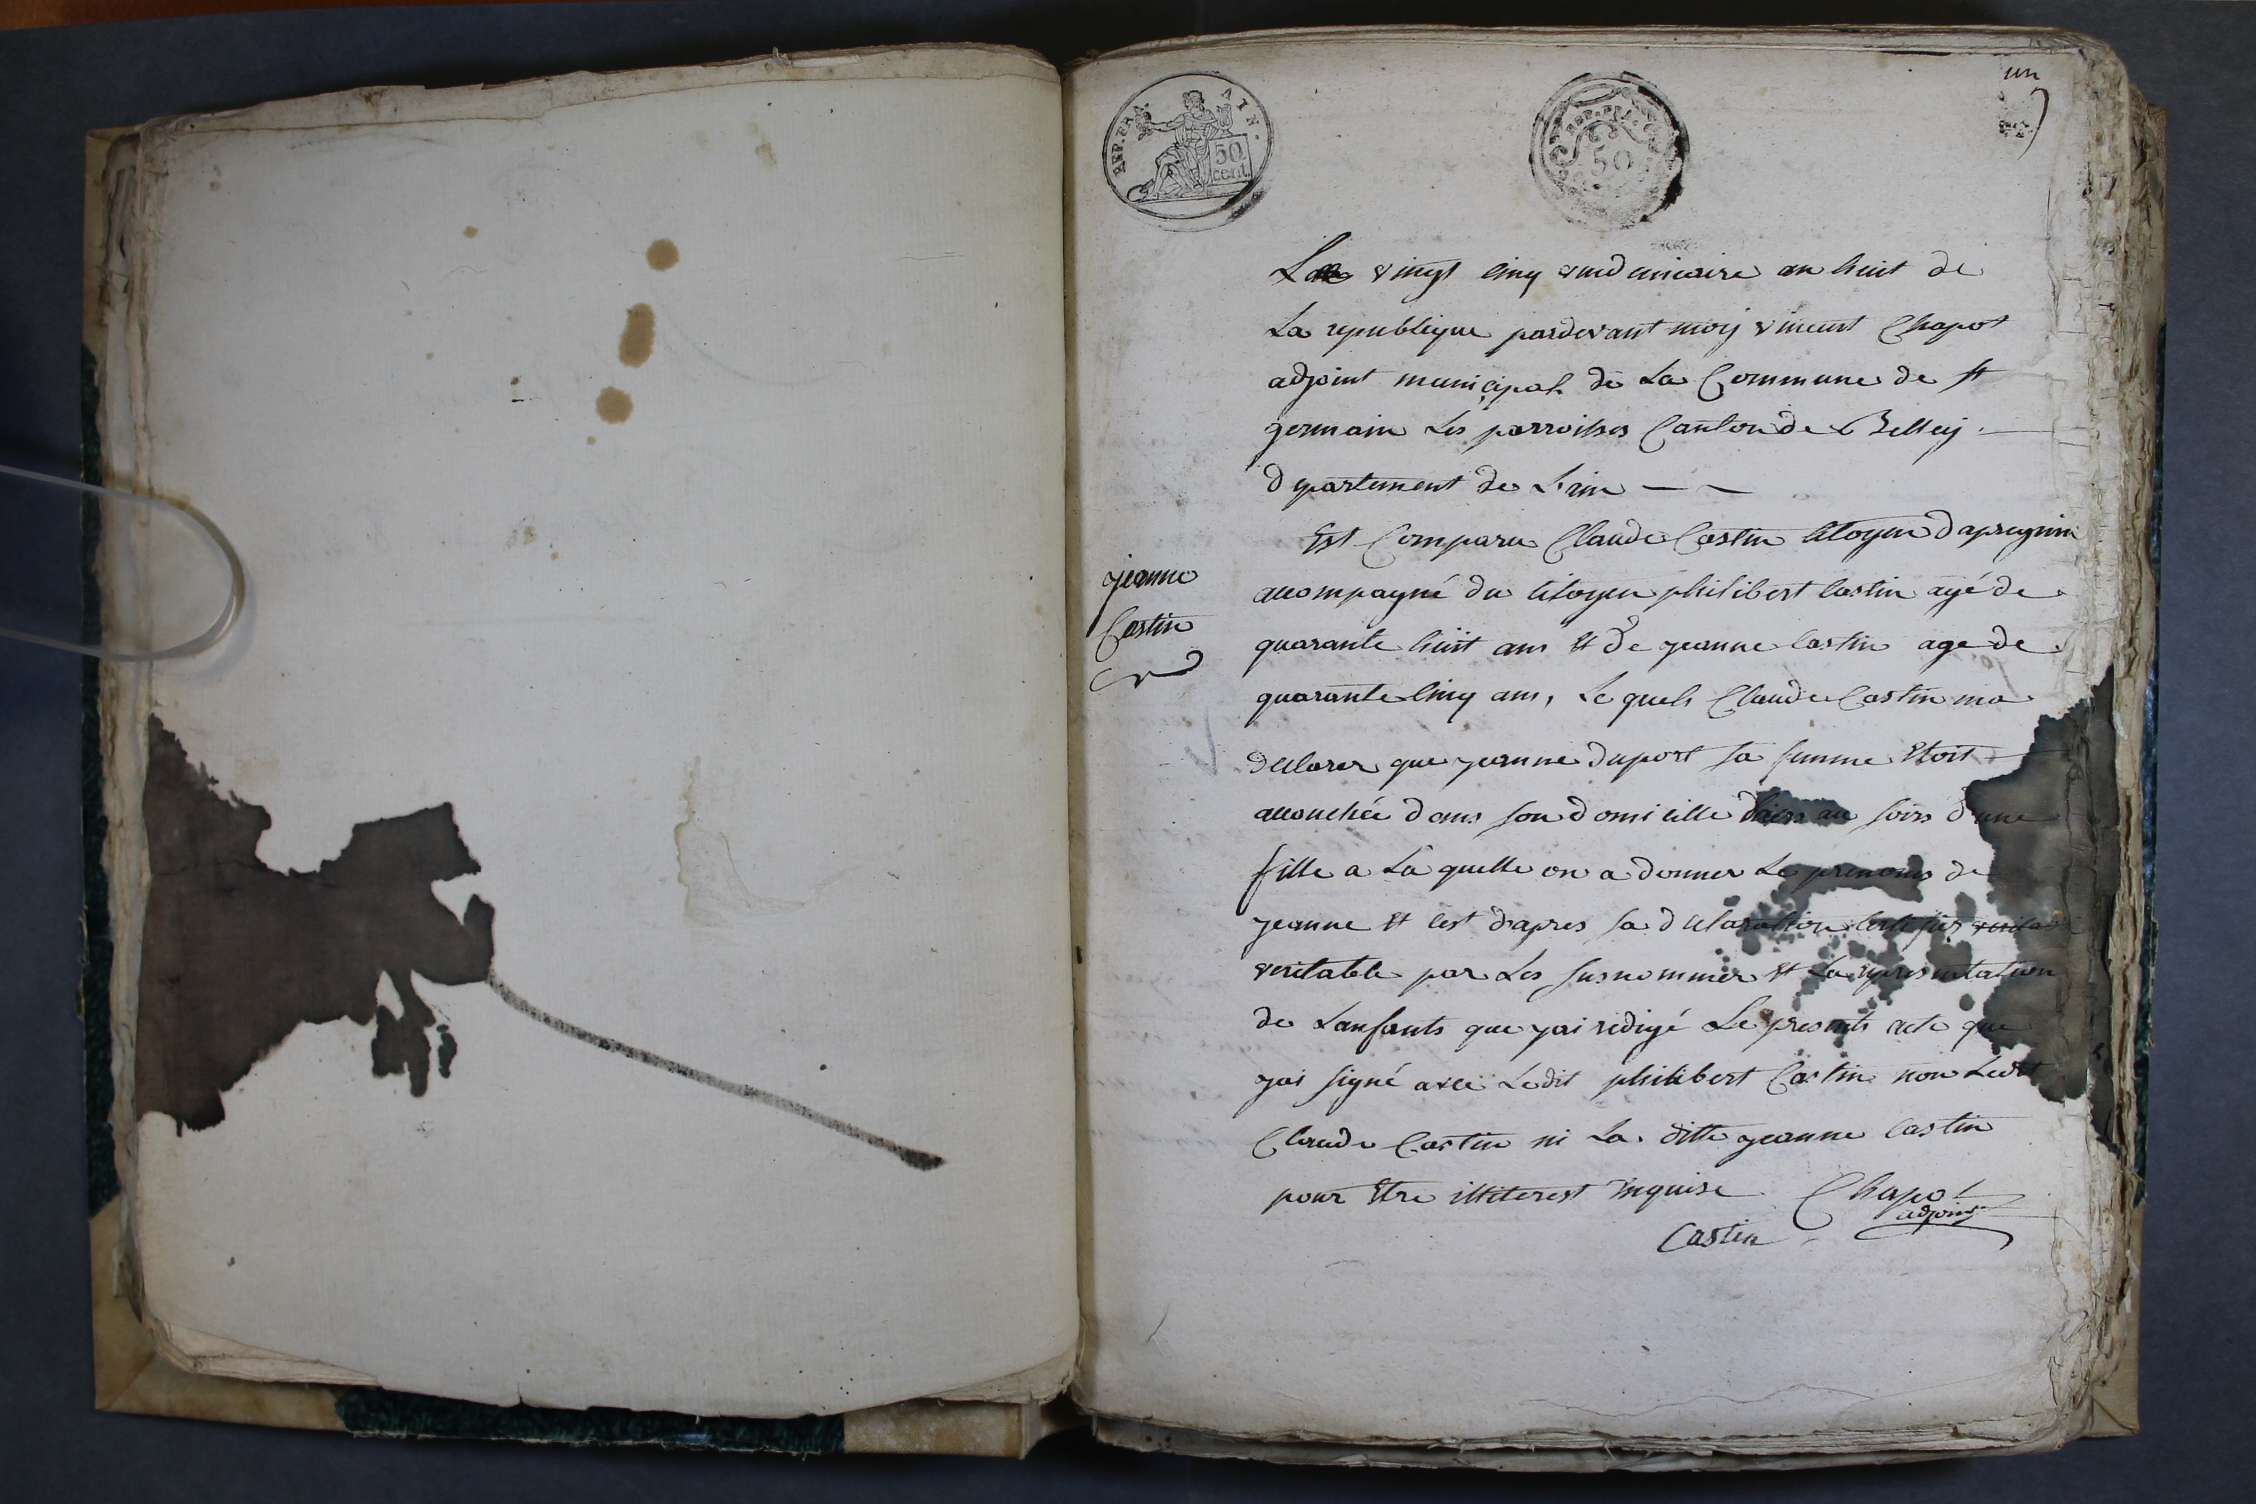 un
REP. FRA
50
cent.
REP. FRA.
50
Le vingt cinq vendemiaire an huit de
La republique pardevant moij vincent Chapot
adjoint municipal de La Commune de st
germain Les parroisses Canton de Belley
departement de L'ain
Est Comparu Claude Castin Citoyen d'apregnin
jeanne
Castin
accompagné du Citoyen philibert Castin agé de
quarante huit ans Et de jeanne Castin age de
quarante Cinq ans, Lequels Claude Castin ma
declarer que jeanne duport sa femme Etoit
accouchée dans son domicille hier au soirs d'une
fille a La quelle on a donner Le prenoms de
jeanne Et c'est d'apres sa declaration certifier
veritable par Les susnommer Et La representation
de Lanfants que jai redigé Le presents acte que
jai signé avec Ledit philibert Castin non Ledit
Claude Castin ni La ditte jeanne Castin
pour Etre illiterest requise
Chapot
adjoint
Castin